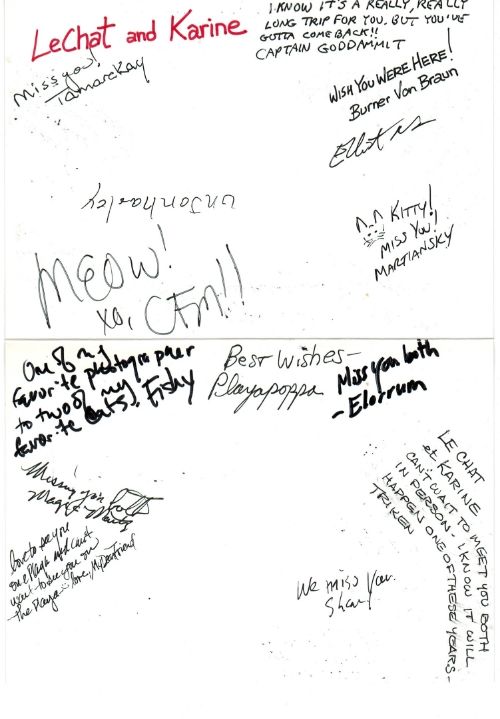 LeChat and Karine
I KNOW IT'S A REALLY, REALLY
LONG TRIP FOR YOU. BUT YOU'VE
GOTTA COME BACK!!
CAPTAIN GODDAMMIT
Miss you!
Tamarckay
WISH YOU WERE HERE!
Burner Von Braun
UnJonharley
KITTY!
MISS YOU!
MARTIANSKY
MEOW!
xo, CFM!!
One of my
favorite photographer
to two of my
favorite cats! Fishy
BEST WISHES-
Playapoppa
Miss you both
- Elorrum
LE CHAT
et KARINE
CAN'T WAIT TO MEET YOU BOTH
IN PERSON - I KNOW IT WILL
HAPPEN ONE OF THESE YEARS-
TRIKEN
Missing you
love to see you
on the
the Playa love, My
We miss you.